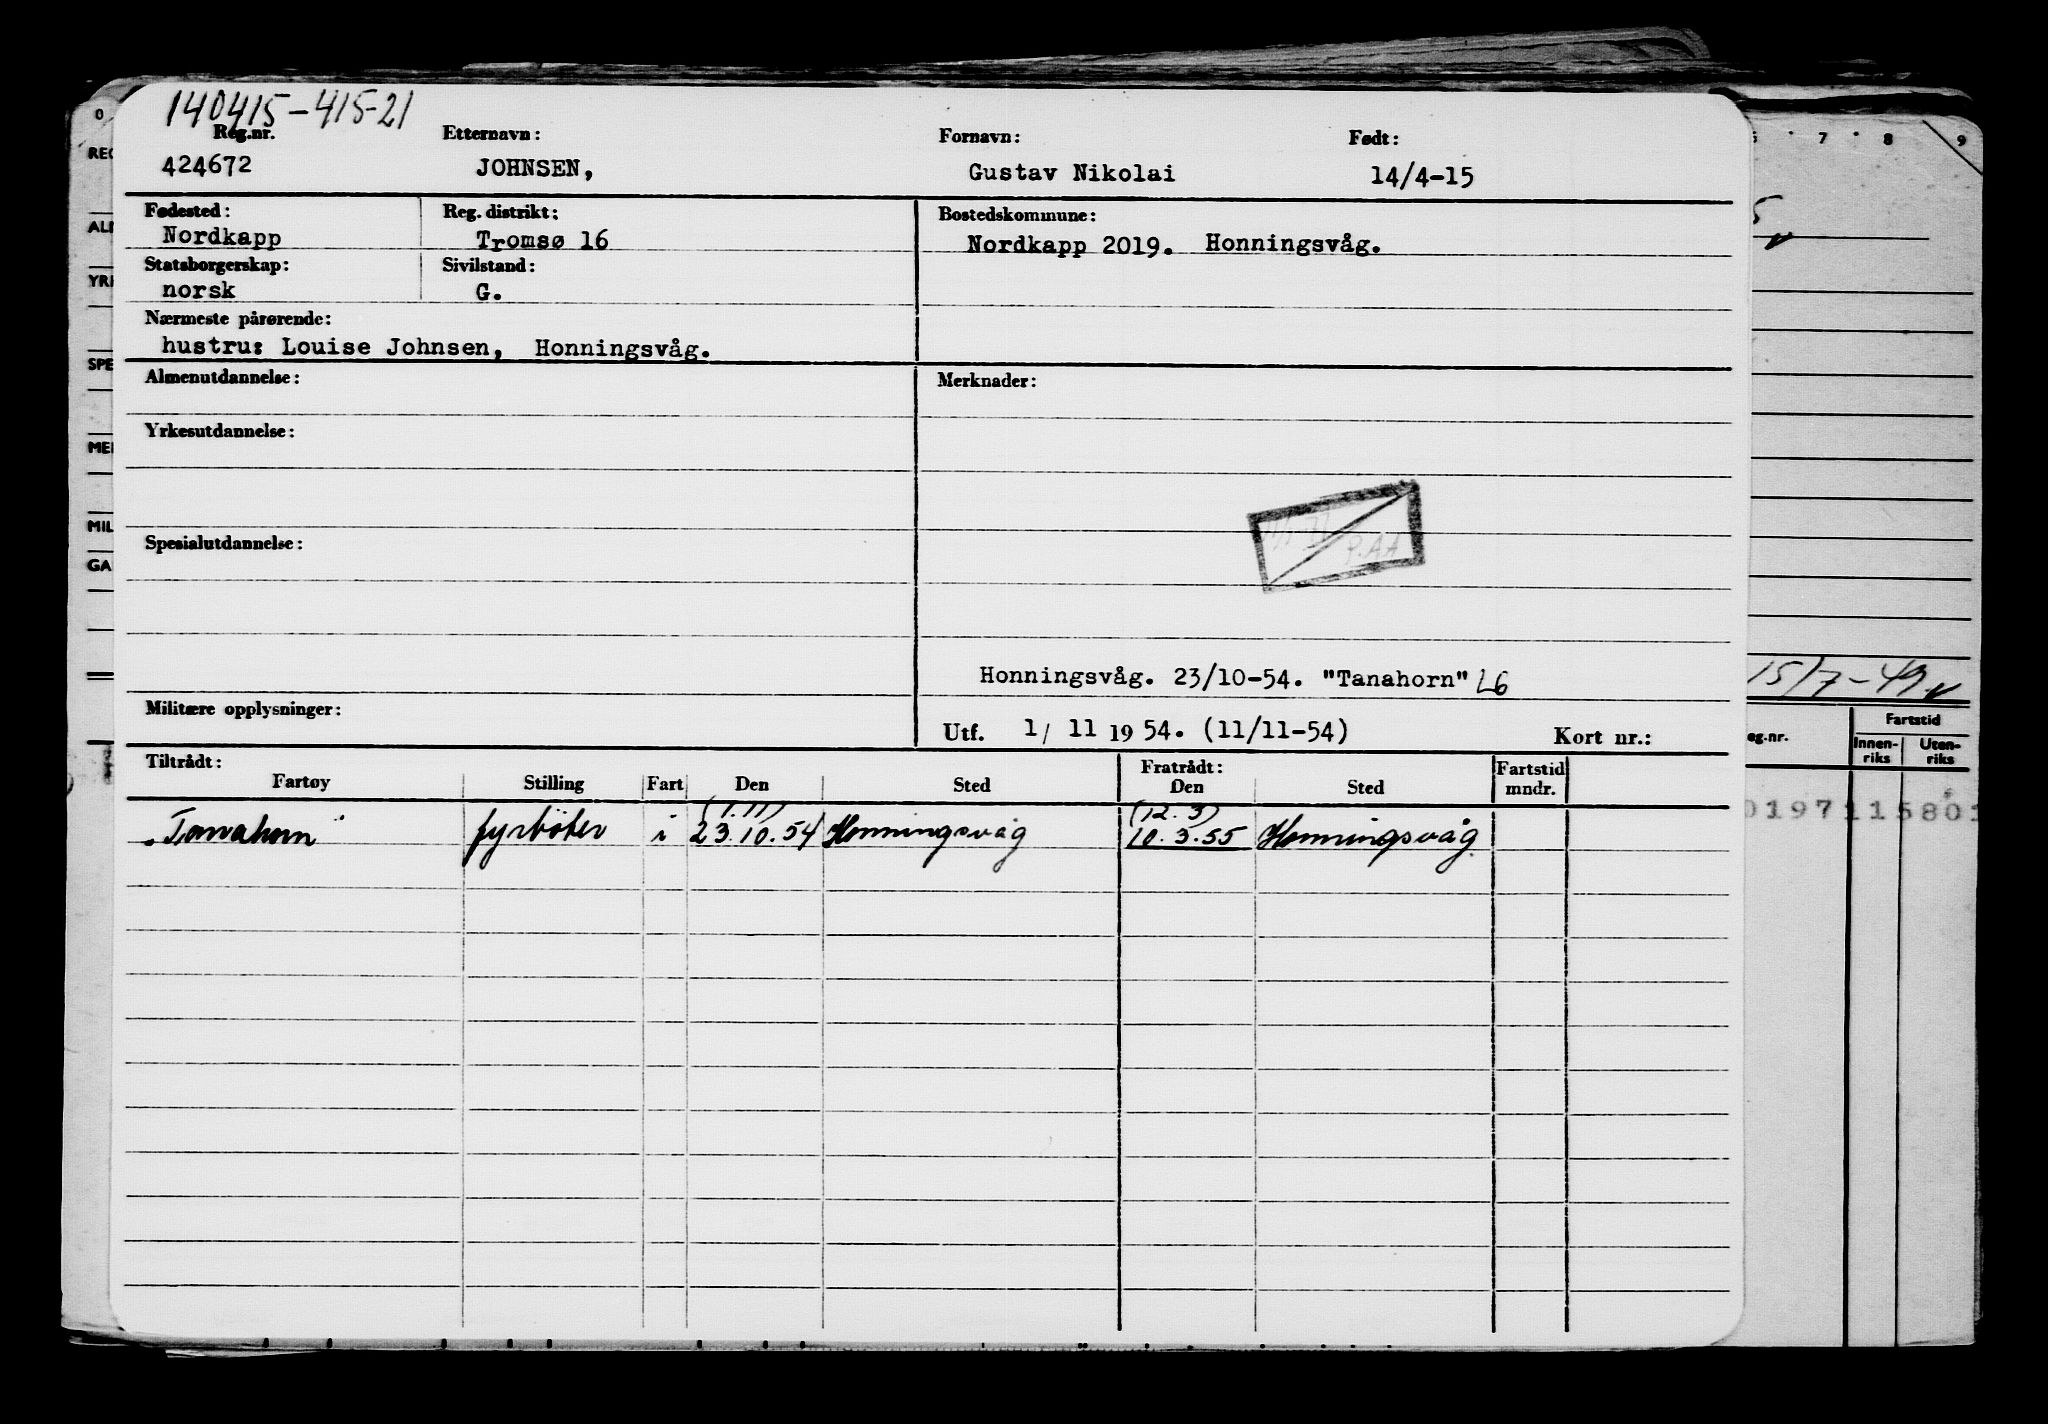 140415-415-21
Reg.nr. Etternavn: Fornavn: Født:
424672 JOHNSEN, Gustav Nikolai 14/4-15
Fødested: Reg. distrikt: Bostedskommune:
Nordkapp Tromsø 16 Nordkapp 2019. Honningsvåg.
Statsborgerskap: Sivilstand:
norsk G.
Nærmeste pårørende:
hustru: Louise Johnsen, Honningsvåg.
Almenutdannelse: Merknader:
Yrkesutdannelse:
Spesialutdannelse:
P.AA
Honningsvåg. 23/10-54. "Tanahorn" L6
Militære opplysninger:
Utf. 1/ 11 19 54. (11/11-54) Kort nr.:
Tiltrådt: Fratrådt: Fartstid
Fartøy Stilling Fart Den Sted Den Sted mndr.
(1.11) (12.3)
"Tanahorn" fyrbøter i 23.10.54 Honningsvåg 10.3.55 Honningsvåg
0
REG
ALM
YRK
SPE
MER
MIL
GA
7 8 9
5
15/7-49
eg.nr. Fartstid
Innen-riks Uten-riks
0197115801